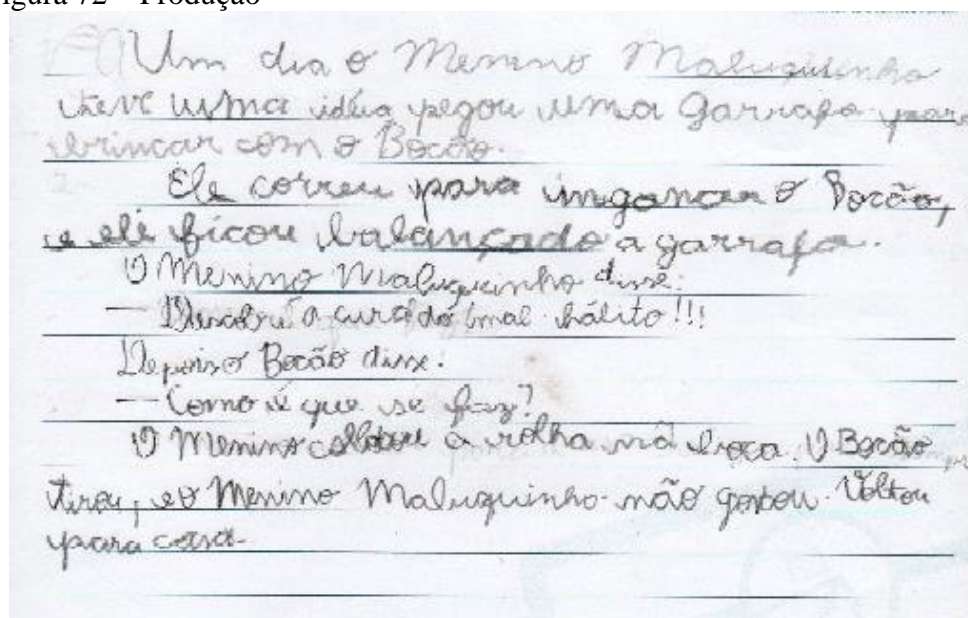 Figura 72 – Produção
Um dia o Menino Maluquinho
teve uma idéia pegou uma garrafa para
brincar com o Bocão.
Ele correu para inganar o Bocão,
e ele ficou balançado a garrafa.
O Menino Maluquinho disse:
— Descobri a cura do mal hálito!!!
Depois o Bocão disse:
— Como é que se faz?
O Menino colocou a rolha na boca, O Bocão
tirou, e o Menino Maluquinho não gostou. Voltou
para casa.